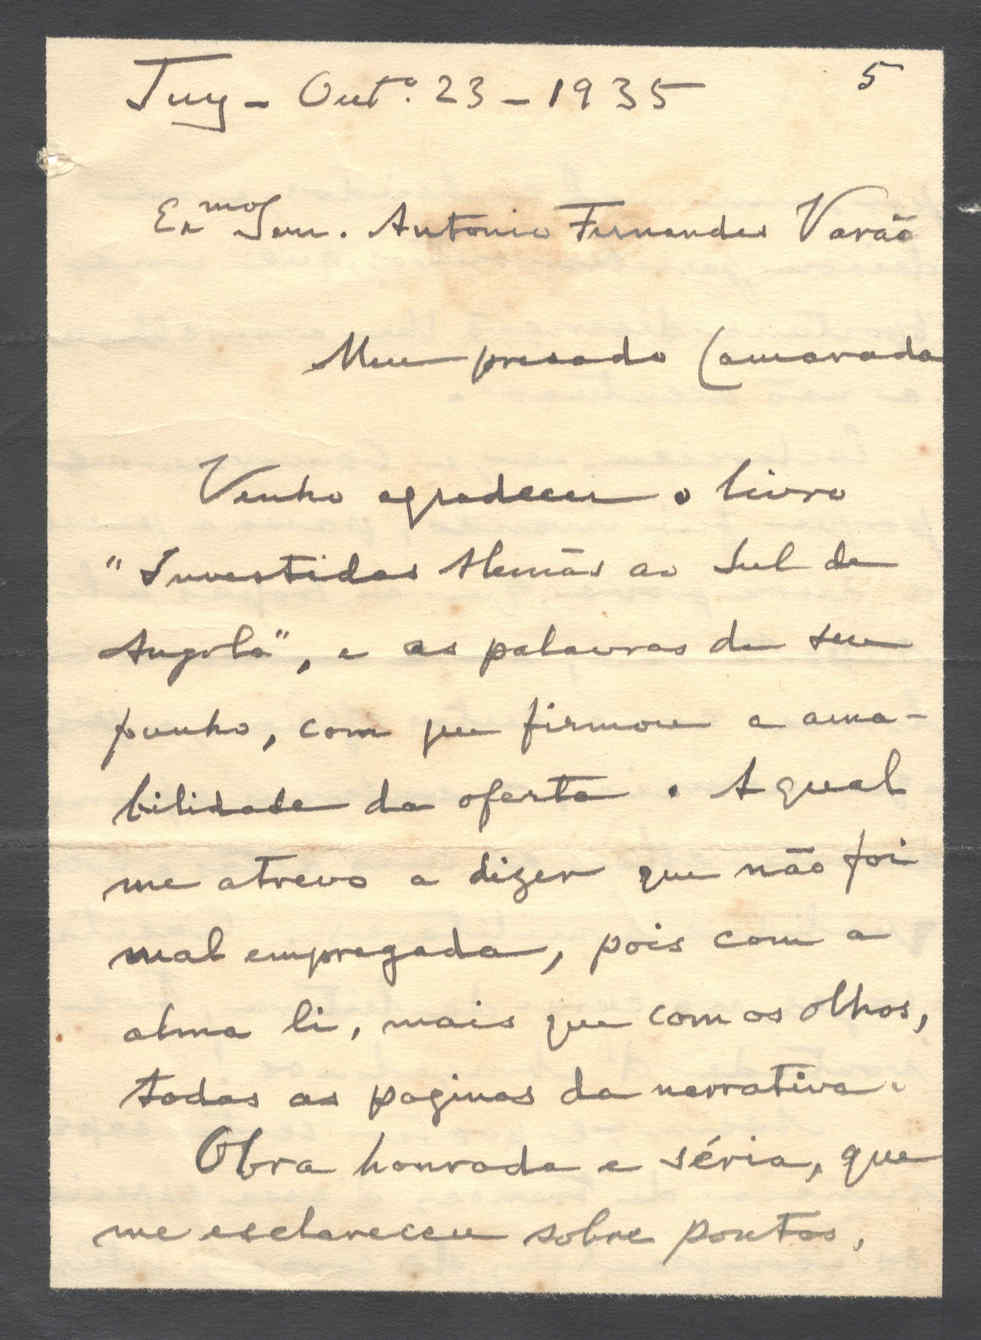 Tuy - Outº. 23 - 1935
5
Exmo Senr. Antonio Fernandes Varão
Meu presado Camarada
Venho agradecer o livro
"Investidas Alemãs ao Sul de
Angola", e as palavras de seu
punho, com que firmou a ama-
bilidade da oferta. A qual
me atrevo a dizer que não foi
mal empregada, pois com a
alma li, mais que com os olhos,
todas as paginas da narrativa.
Obra honrada e séria, que
me esclareceu sobre pontos,